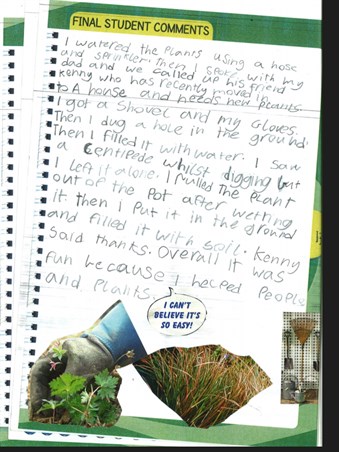 FINAL STUDENT COMMENTS
I watered the Plants using a hose
and sprinkler then I spoke with my
dad and we called up his friend
Kenny who has recently moved in
to A house and needs new plants.
I got a Shovel and my Gloves.
Then I dug a hole in the ground.
Then I filled it with water. I saw
a Centipede whilst digging but
I left it alone. I Pulled The Plant
out of the Pot after wetting
it then I put it in the ground
and filled it with soil. Kenny
said thanks. Overall it was
fun because I helped People
and Plants.
I CAN'T
BELIEVE IT'S
SO EASY!